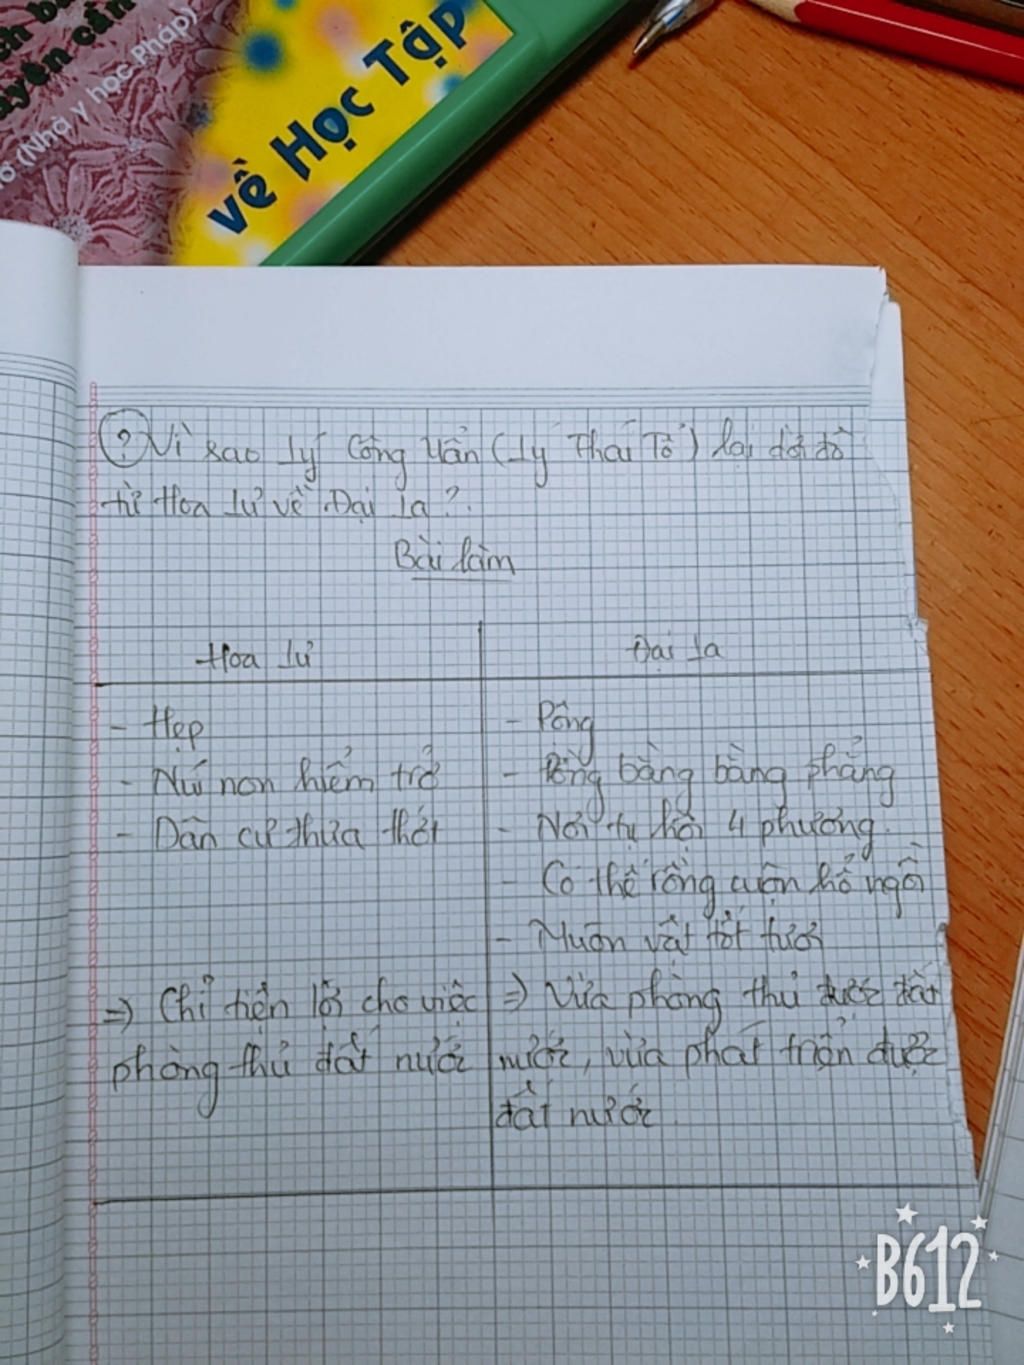 ch
uyên cần
(Nhà y học Pháp)
về Học Tập
? Vì sao Lý Công Uẩn (Lý Thái Tổ) lại dời đô
từ Hoa Lư về Đại La?
Bài làm
Hoa Lư
Đại La
- Hẹp
- Núi non hiểm trở
- Dân cư thưa thớt
=> Chỉ tiện lời cho việc
phòng thủ đất nước
- Rộng
- Đồng bằng bằng phẳng
- Nơi tụ hội 4 phương.
- Có thế rồng cuộn hổ ngồi
- Muôn vật tốt tươi
=> Vừa phòng thủ được đất
nước, vừa phát triển được
đất nước.
B612